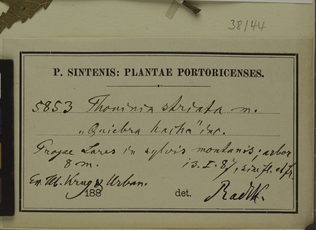 38/44
P. SINTENIS: PLANTAE PORTORICENSES.
5853 Thouinia striata m.
„Quiebra hacha" inc.
Prope Lares in sylvis montanis; arbor
8 m. 13. I. 87,
Ex Hb. Krug & Urban.
188 det. Radlk.